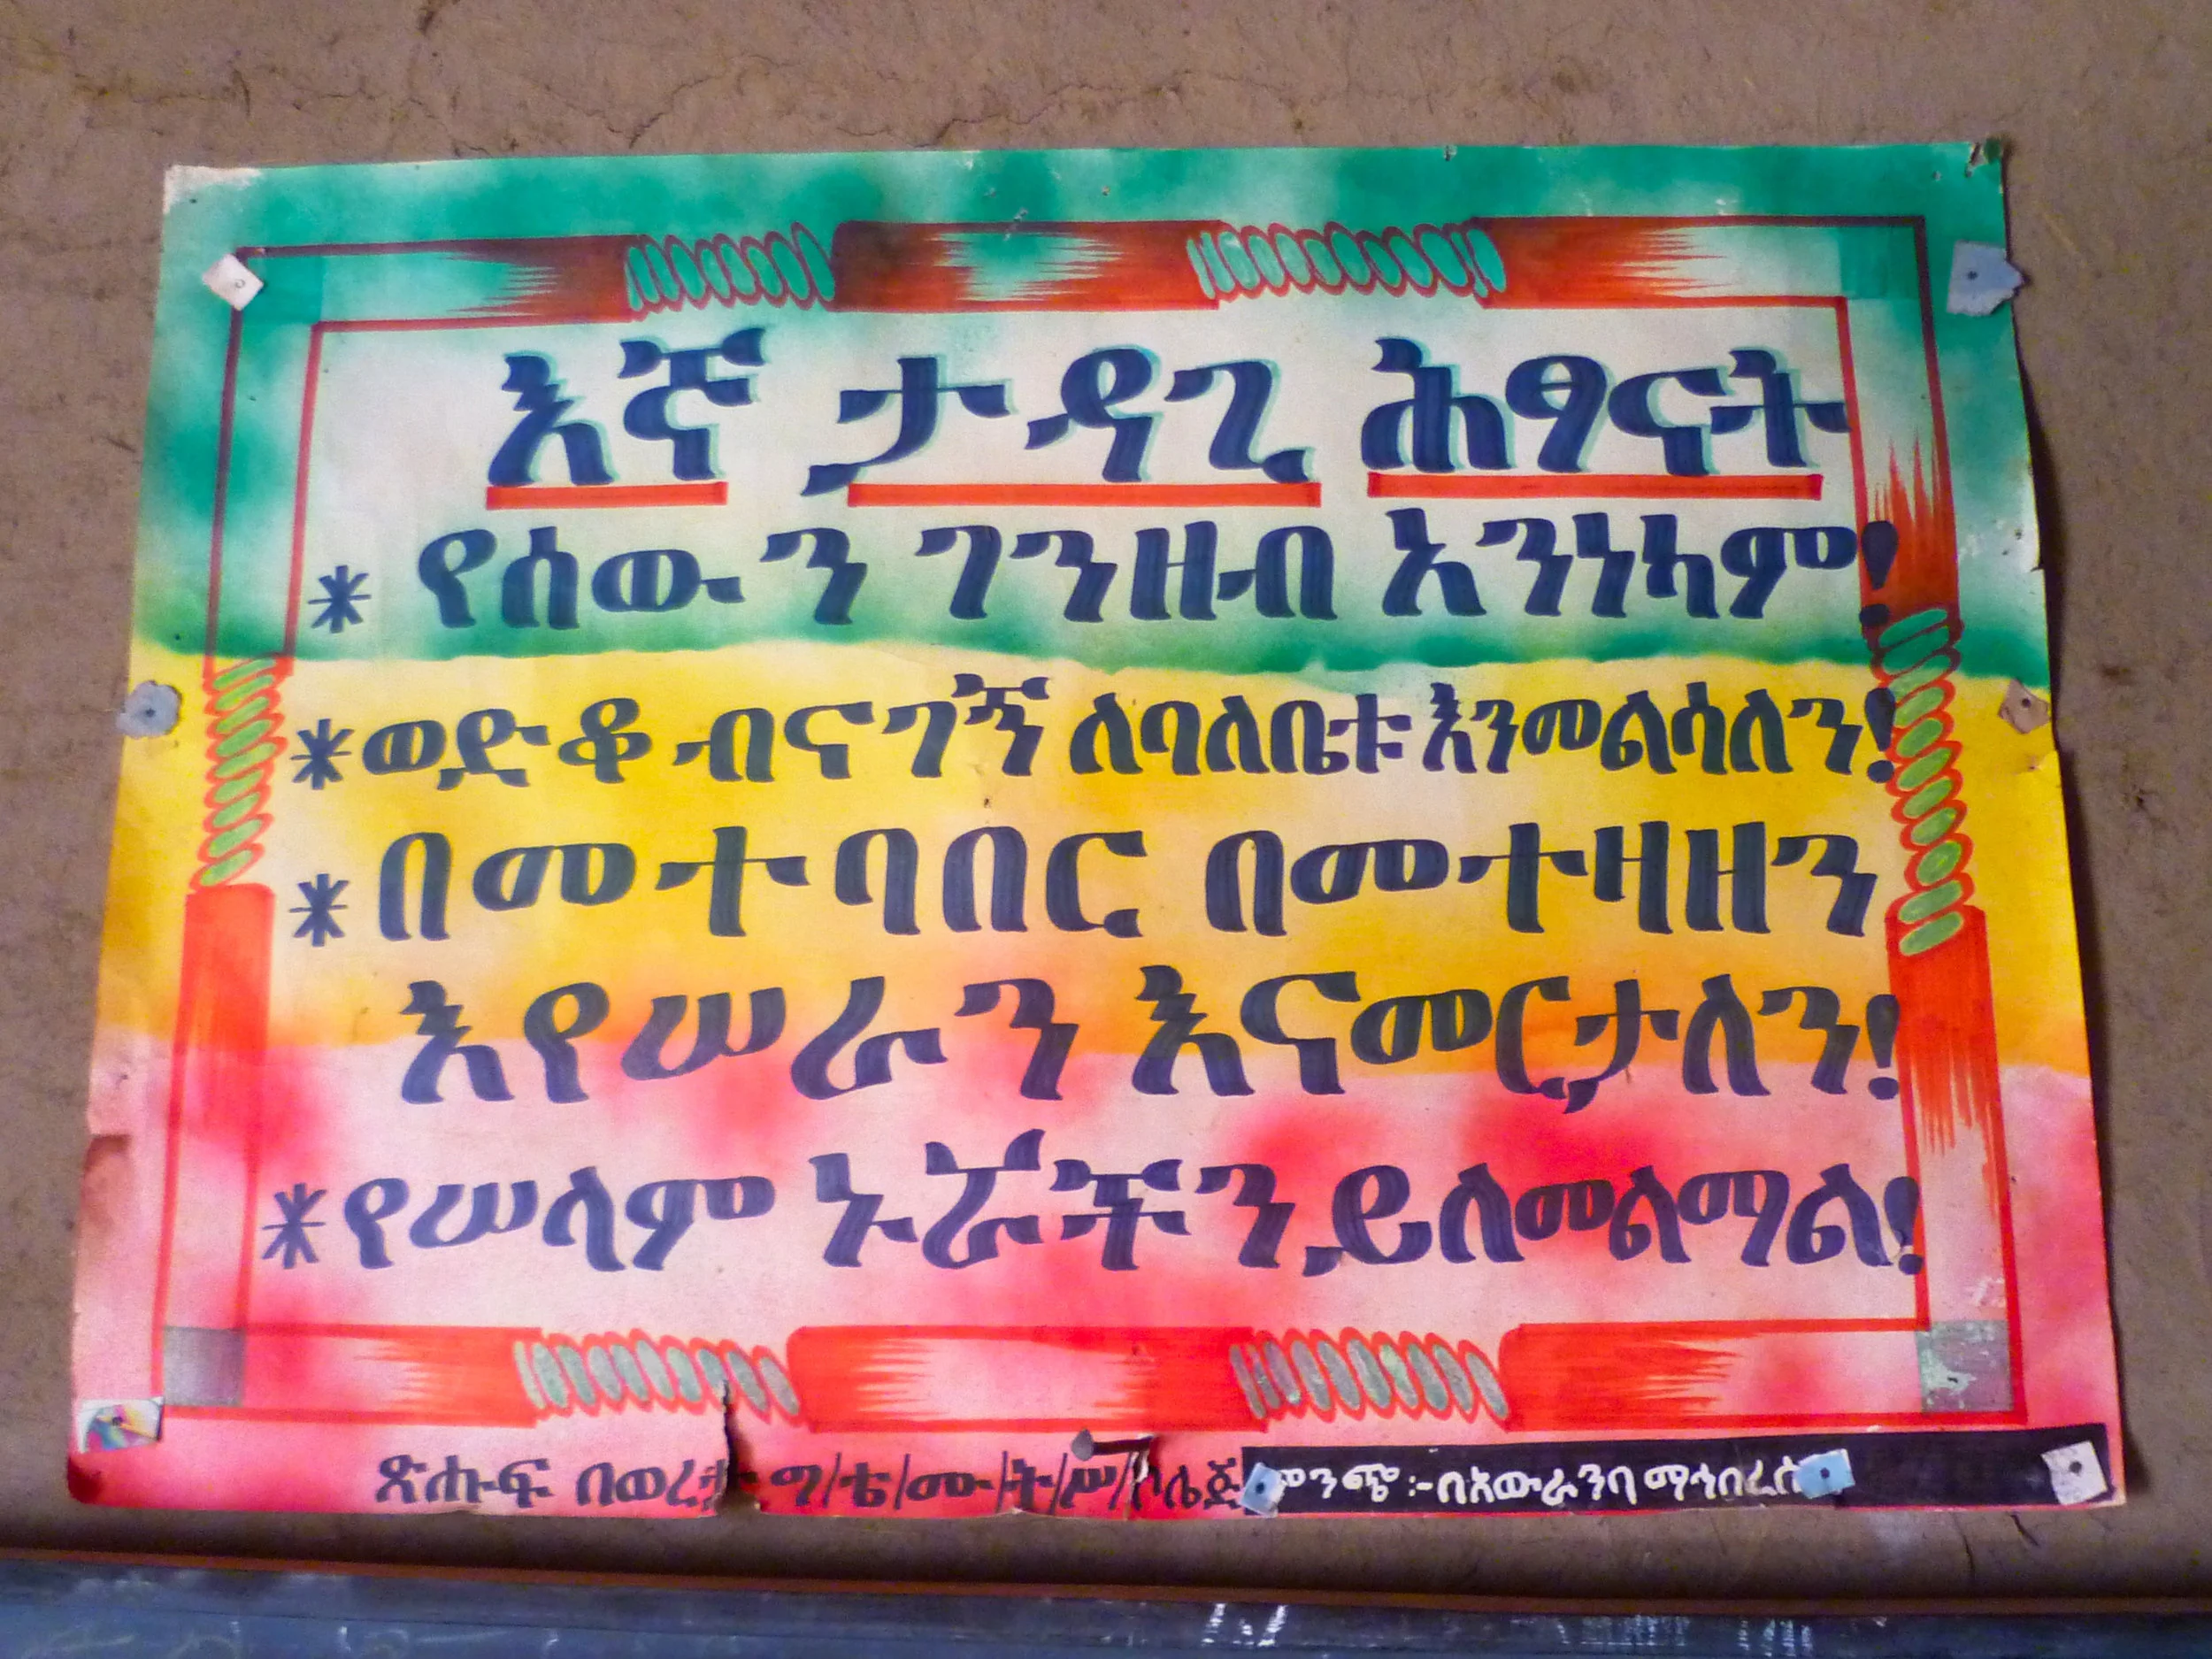 እኛ ታዳጊ ሕፃናት
* የሰውን ገንዘብ አንነካም!
* ወድቆ ብናገኝ ለባለቤቱ እንመልሳለን!
* በመተባበር በመተዛዘን
እየሠራን እናመርታለን!
* የሠላም ኑሯችን ይለመልማል!
ጽሑፍ በወረታ ግ/ቴ/ሙ/ት/ሥ/ኮሌጅ ምንጭ :- በአውራንባ ማኅበረሰብ